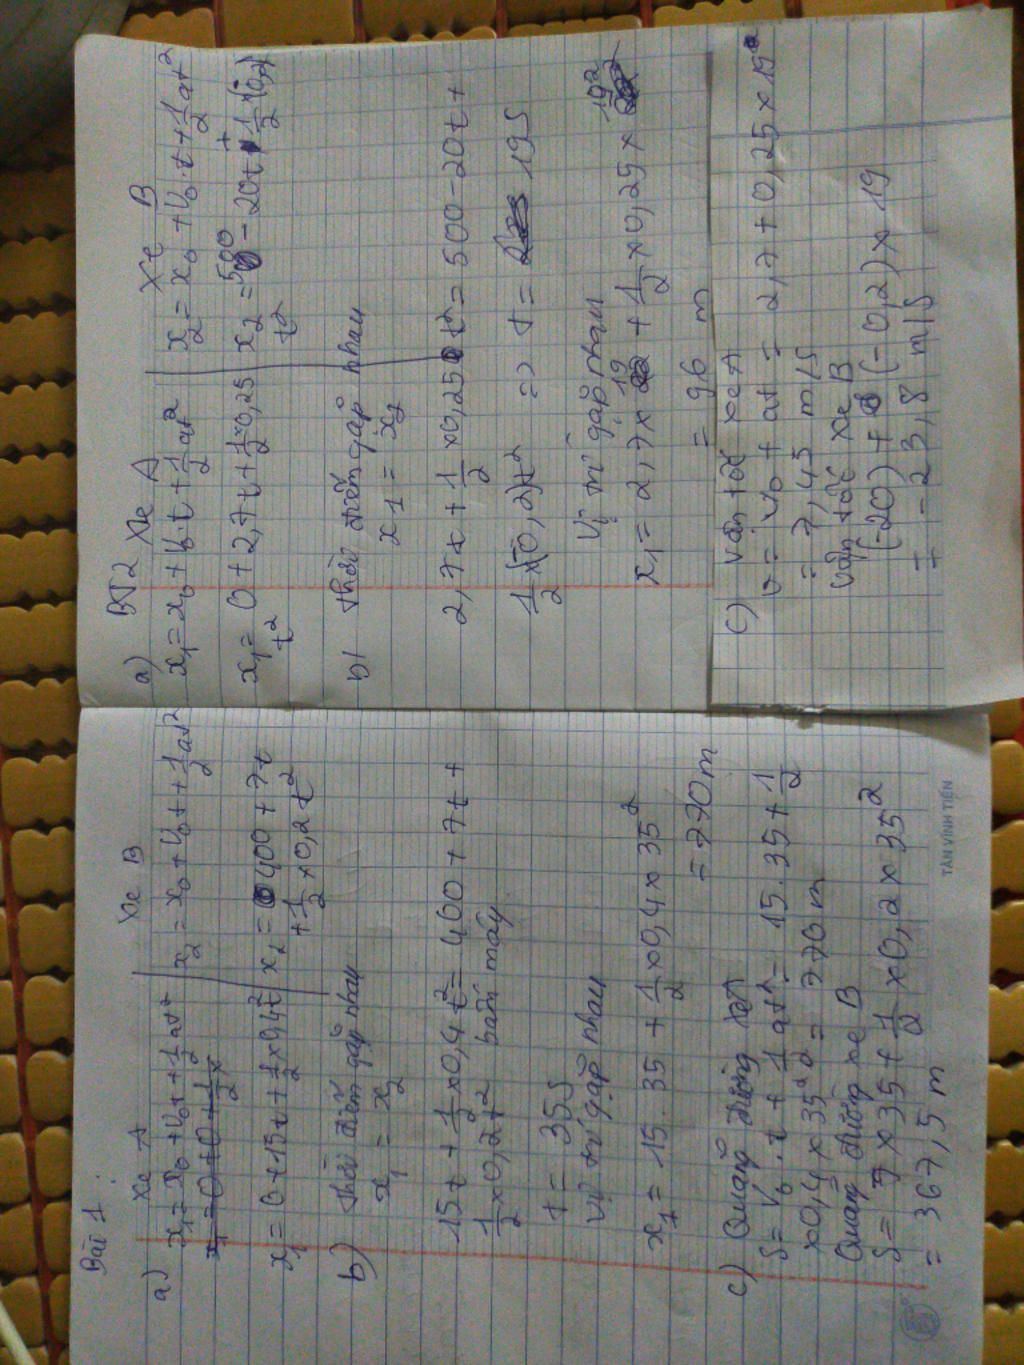 Bài 1:
Xe A Xe B
a) x₁ = x₀ + v₀t + 1/2 at² x₂ = x₀ + v₀t + 1/2 at²
x₁ = 0 + 15t + 1/2 x 0,4t² x₂ = 400 + 7t
+ 1/2 x 0,2t²
b) Thời điểm gặp nhau
x₁ = x₂
15t + 1/2 x 0,4 t² = 400 + 7t +
1/2 x 0,2t² bấm máy
t = 35s
Vị trí gặp nhau
x₁ = 15.35 + 1/2 x 0,4 x 35²
= 770m
c) Quãng đường xe A
S = V₀.t + 1/2 at² = 15.35 + 1/2
x 0,4 x 35² = 770 m
Quãng đường xe B
S = 7 x 35 + 1/2 x 0,2 x 35²
= 367,5 m
TÂN VĨNH TIẾN
BT2 Xe A Xe B
a) x₁ = x₀ + v₀t + 1/2 at² x₂ = x₀ + v₀.t + 1/2 at²
x₁ = 0 + 2,7t + 1/2 x 0,25 x₂ = 500 - 20t + 1/2 x (-0,2)
t² t²
b) Thời điểm gặp nhau
x₁ = x₂
2,7x + 1/2 x 0,25 t² = 500 - 20t +
1/2 x (-0,2)t² => t = 19s
Vị trí gặp nhau
x₁ = 2,7 x 19 + 1/2 x 0,25 x 19²
= 96 m
c) Vận tốc xe A
v = v₀ + at = 2,7 + 0,25 x 19
= 7,45 m/s
Vận tốc xe B
(-20) + (-0,2) x 19
= -23,8 m/s